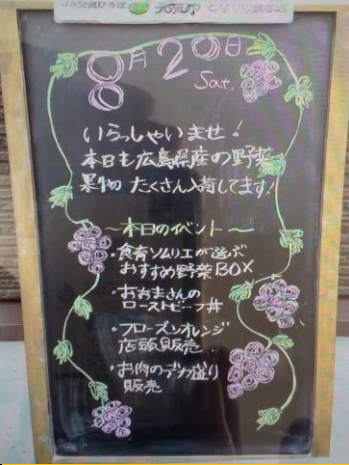 JA交流ひろば 元気市 となりの農家店
8月20日
Sat.
いらっしゃいませ!
本日も広島県産の野菜
果物 たくさん入荷してます!
〜本日のイベント〜
・食育ソムリエが選ぶ
おすすめ野菜BOX
・おおまさんの
ローストビーフ丼
・フローズンオレンジ
店頭販売
・お肉のデカ盛り
販売